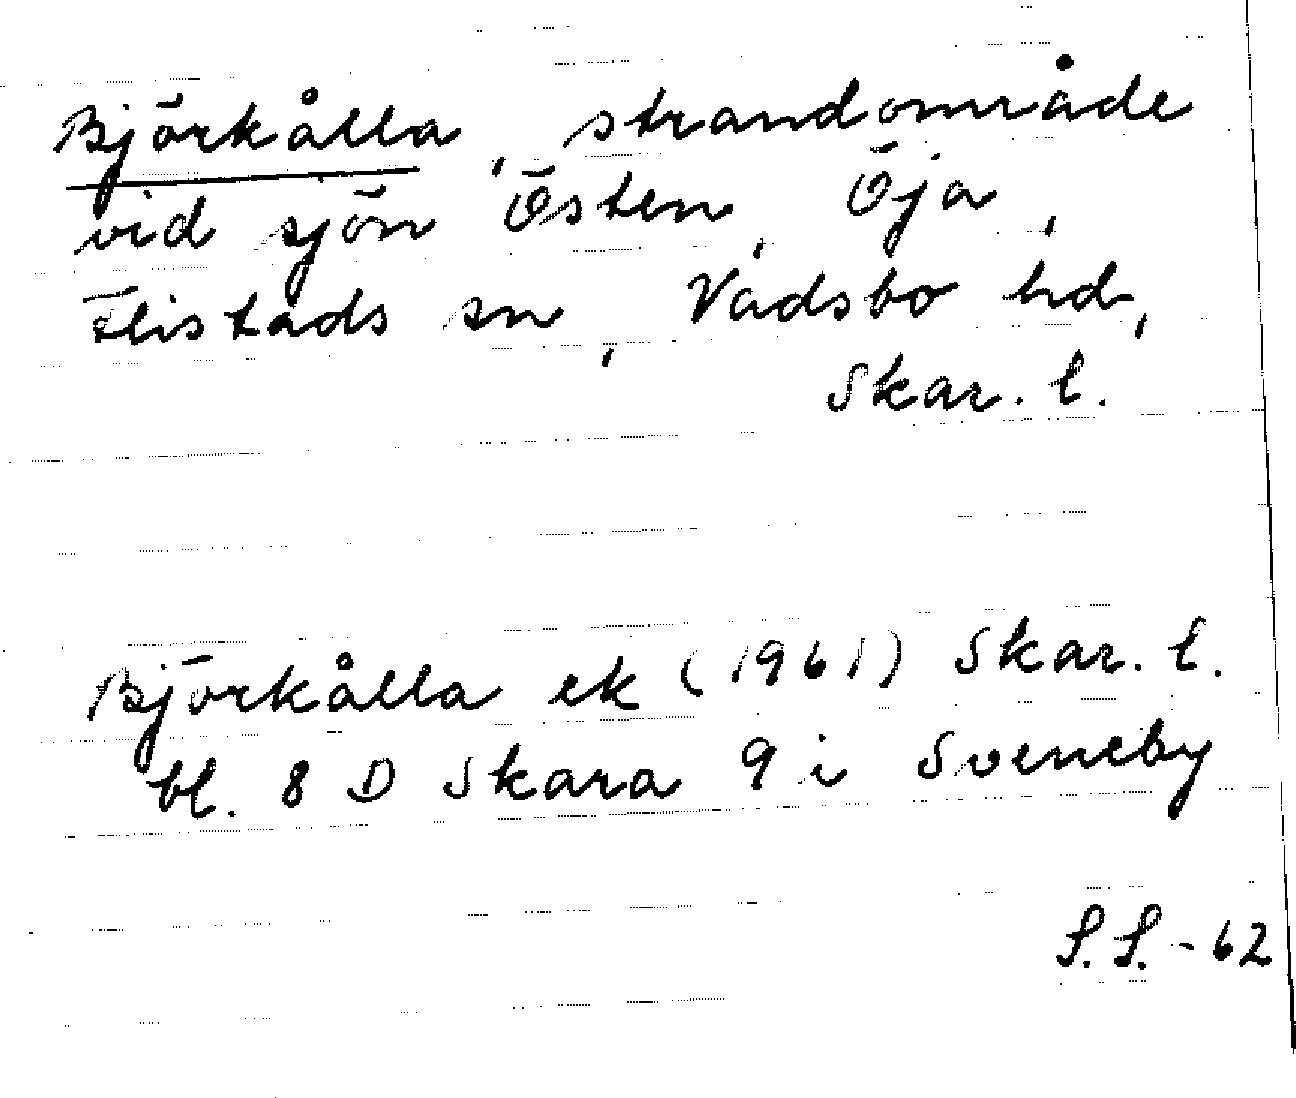 Björkålla, strandområde
vid sjön Östen, Öja,
Flistads sn, Vadsbo hd,
Skar. l.
Björkålla ek (1961) Skar. l.
bl. 8 D Skara 9 i Sveneby
S.S.-62